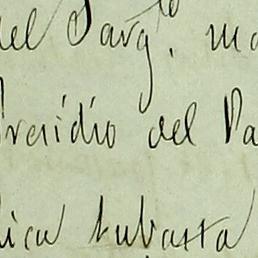 del Sarg.to ma
Presidio del Pa
lica subasta